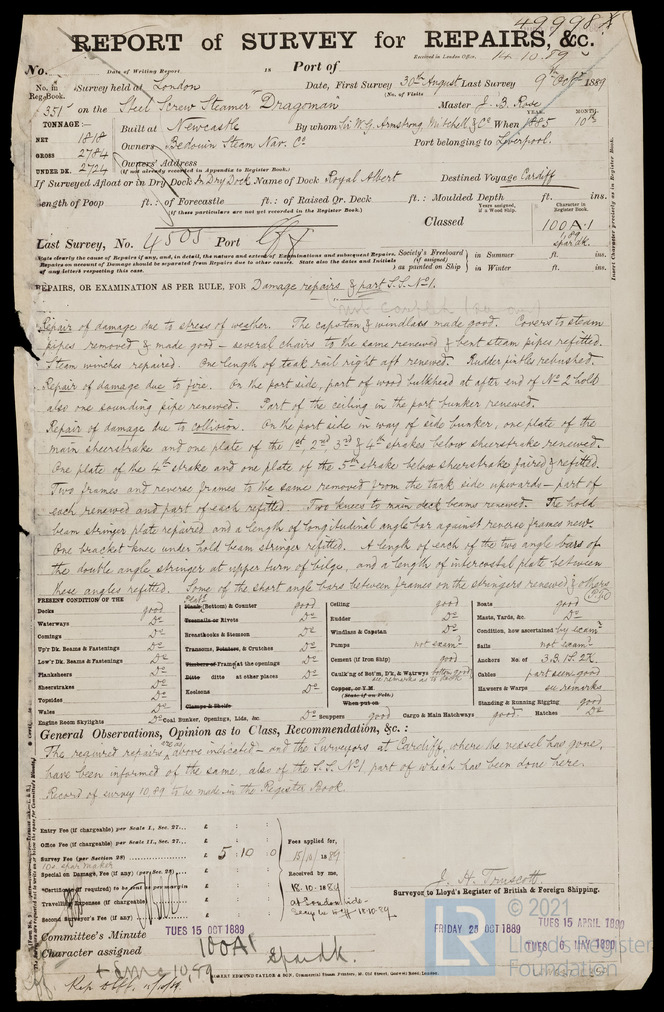 49998
REPORT of SURVEY for REPAIRS, &c.
Received in London Office, 14.10.89
No. Date of Writing Report is Port of
No. in Reg. Book. Survey held at London Date, First Survey 30th August Last Survey 9th Octr 1889
(No. of Visits
351 on the Steel Screw Steamer "Dragoman" Master J. B. Rose
TONNAGE:— YEAR. MONTH.
NET 1818 Built at Newcastle By whom Sir W.G. Armstrong, Mitchell & Co When 1885 10th
GROSS 2784 Owners Bedouin Steam Nav. Co Port belonging to Liverpool.
UNDER DK. 2724 Owners' Address
(If not already recorded in Appendix to Register Book.)
If Surveyed Afloat or in Dry Dock In Dry Dock Name of Dock Royal Albert Destined Voyage Cardiff
Length of Poop ft.: of Forecastle ft.: of Raised Qr. Deck ft.: Moulded Depth ft. ins.
(If these particulars are not yet recorded in the Register Book.)
Years assigned, if a Wood Ship. Character in Register Book.
Classed 100A.1
spar dk.
Insert Character precisely as in Register Book.
Last Survey, No. 4505 Port
State clearly the Cause of Repairs, if any, and, in detail, the nature and extent of Examinations and subsequent Repairs.
Repairs on account of Damage should be separated from Repairs due to other causes. State also the dates and Initials
of any letters respecting this case.
Society's Freeboard (if assigned) as painted on Ship } in Summer ft. ins.
in Winter ft. ins.
REPAIRS, OR EXAMINATION AS PER RULE, FOR Damage repairs & part S.S. No 1.
Repair of damage due to stress of weather. The capstan & windlass made good. Covers to steam
pipes removed & made good – several chairs to the same renewed & bent steam pipes refitted.
Steam winches repaired. One length of teak rail right aft renewed. Rudder pintles rebushed.
Repair of damage due to fire. On the port side, part of wood bulkhead at after end of No 2 hold
also one sounding pipe renewed. Part of the ceiling in the port bunker renewed.
Repair of damage due to collision. On the port side in way of side bunker, one plate of the
main sheerstrake and one plate of the 1st, 2nd, 3rd & 4th strakes below sheerstrake renewed.
One plate of the 4th strake and one plate of the 5th strake below sheerstrake faired & refitted.
Two frames and reverse frames to the same removed from the tank side upwards – part of
each renewed and part of each refitted. Two knees to main deck beams renewed. The hold
beam stringer plate repaired and a length of longitudinal angle bar against reverse frames new.
One bracket knee under hold beam stringer refitted. A length of each of the two angle bars of
the double angle stringer at upper turn of bilge, and a length of intercostal plate between
these angles refitted. Some of the short angle bars between frames on the stringers renewed & others
PRESENT CONDITION OF THE
Decks good
Waterways Do
Comings Do
Up'r Dk. Beams & Fastenings Do
Low'r Dk. Beams & Fastenings Do
Planksheers Do
Sheerstrakes Do
Topsides Do
Wales Do
Engine Room Skylights Do
Plate Plank (Bottom) & Counter good
Treenails or Rivets Do
Breasthooks & Stemson Do
Transoms, Pointers, & Crutches Do
Timbers of Frame at the openings Do
Ditto ditto at other places Do
Keelsons Do
Clamps & Shelfs
Coal Bunker, Openings, Lids, &c Do
Ceiling good
Rudder Do
Windlass & Capstan Do
Pumps not examd
Cement (if Iron Ship) good
Caulk'ng of Bot'm, D'k, & Waterways bottom good
see remarks as to deck
Copper, or Y.M.
(State if on Felt.)
When put on
Scuppers good
Cargo & Main Hatchways good
Boats good
Masts, Yards, &c. Do
Condition, how ascertained by examn
Sails not examd
Anchors No. of 3.B. 1S. 2K.
Cables part seen good
Hawsers & Warps see remarks
Standing & Running Rigging good
Hatches Do
General Observations, Opinion as to Class, Recommendation, &c.:
The required repairs are as above indicated – and the Surveyors at Cardiff, where the vessel has gone,
have been informed of the same, also of the S.S. No 1, part of which has been done here.
Record of survey 10,89 to be made in the Register Book.
Entry Fee (if chargeable) per Scale I., Sec. 27... £ : :
Office Fee (if chargeable) per Scale II., Sec. 27... £ : :
Survey Fee (per Section 28) £ 5 : 10 : 0
Special on Damage, Fee (if any) (per Sec. 28) £
*Certificate (if required) to be sent as per margin
Travelling Expenses (if chargeable) £
Second Surveyor's Fee (if any) £
Fees applied for,
15/10/1889
Received by me,
18.10.1889
J. H. Truscott
Surveyor to Lloyd's Register of British & Foreign Shipping.
Committee's Minute TUES 15 OCT 1889 FRIDAY 25 OCT 1889 TUES 15 APRIL 1890
TUES 6 MAY 1890
Character assigned 100A1 spar dk.
10,89
LR
© 2021
Lloyd's Register
Foundation